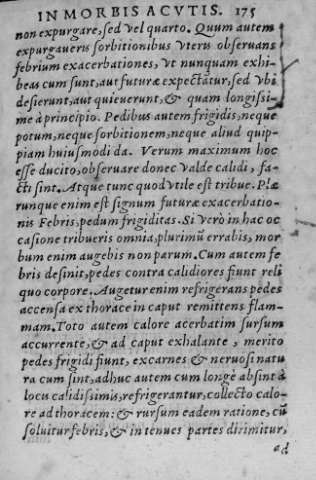 IN MORBIS ACVTIS. 175
non expurgare, sed vel quarto. Quum autem
expurgaueris sorbitionibus vteris obseruans
febrium exacerbationes, vt nunquam exhi-
beas cum sunt, aut futuræ expectãtur, sed vbi
desierunt, aut quieuerunt, & quam longissi-
me à principio. Pedibus autem frigidis, neque
potum, neque sorbitionem, neque aliud quip-
piam huiusmodi da. Verum maximum hoc
esse ducito, obseruare donec valde calidi, fa-
cti sint. Atque tunc quod vtile est tribue. Plæ
runque enim est signum futuræ exacerbatio-
nis Febris, pedum frigiditas. Si verò in hac oc
casione tribueris omnia, plurimũ errabis, mor
bum enim augebis non parum. Cum autem fe
bris desinit, pedes contra calidiores fiunt reli
quo corpore. Augetur enim refrigerans pedes
accensa ex thorace in caput remittens flam-
mam. Toto autem calore acerbatim sursum
accurrente, & ad caput exhalante, merito
pedes frigidi fiunt, excarnes & neruosi natu
ra cum sint, adhuc autem cum longè absint à
locis calidissimis, refrigerantur, collecto calo-
re ad thoracem: & rursum eadem ratione, cũ
soluitur febris, & in tenues partes dirimitur,
ad